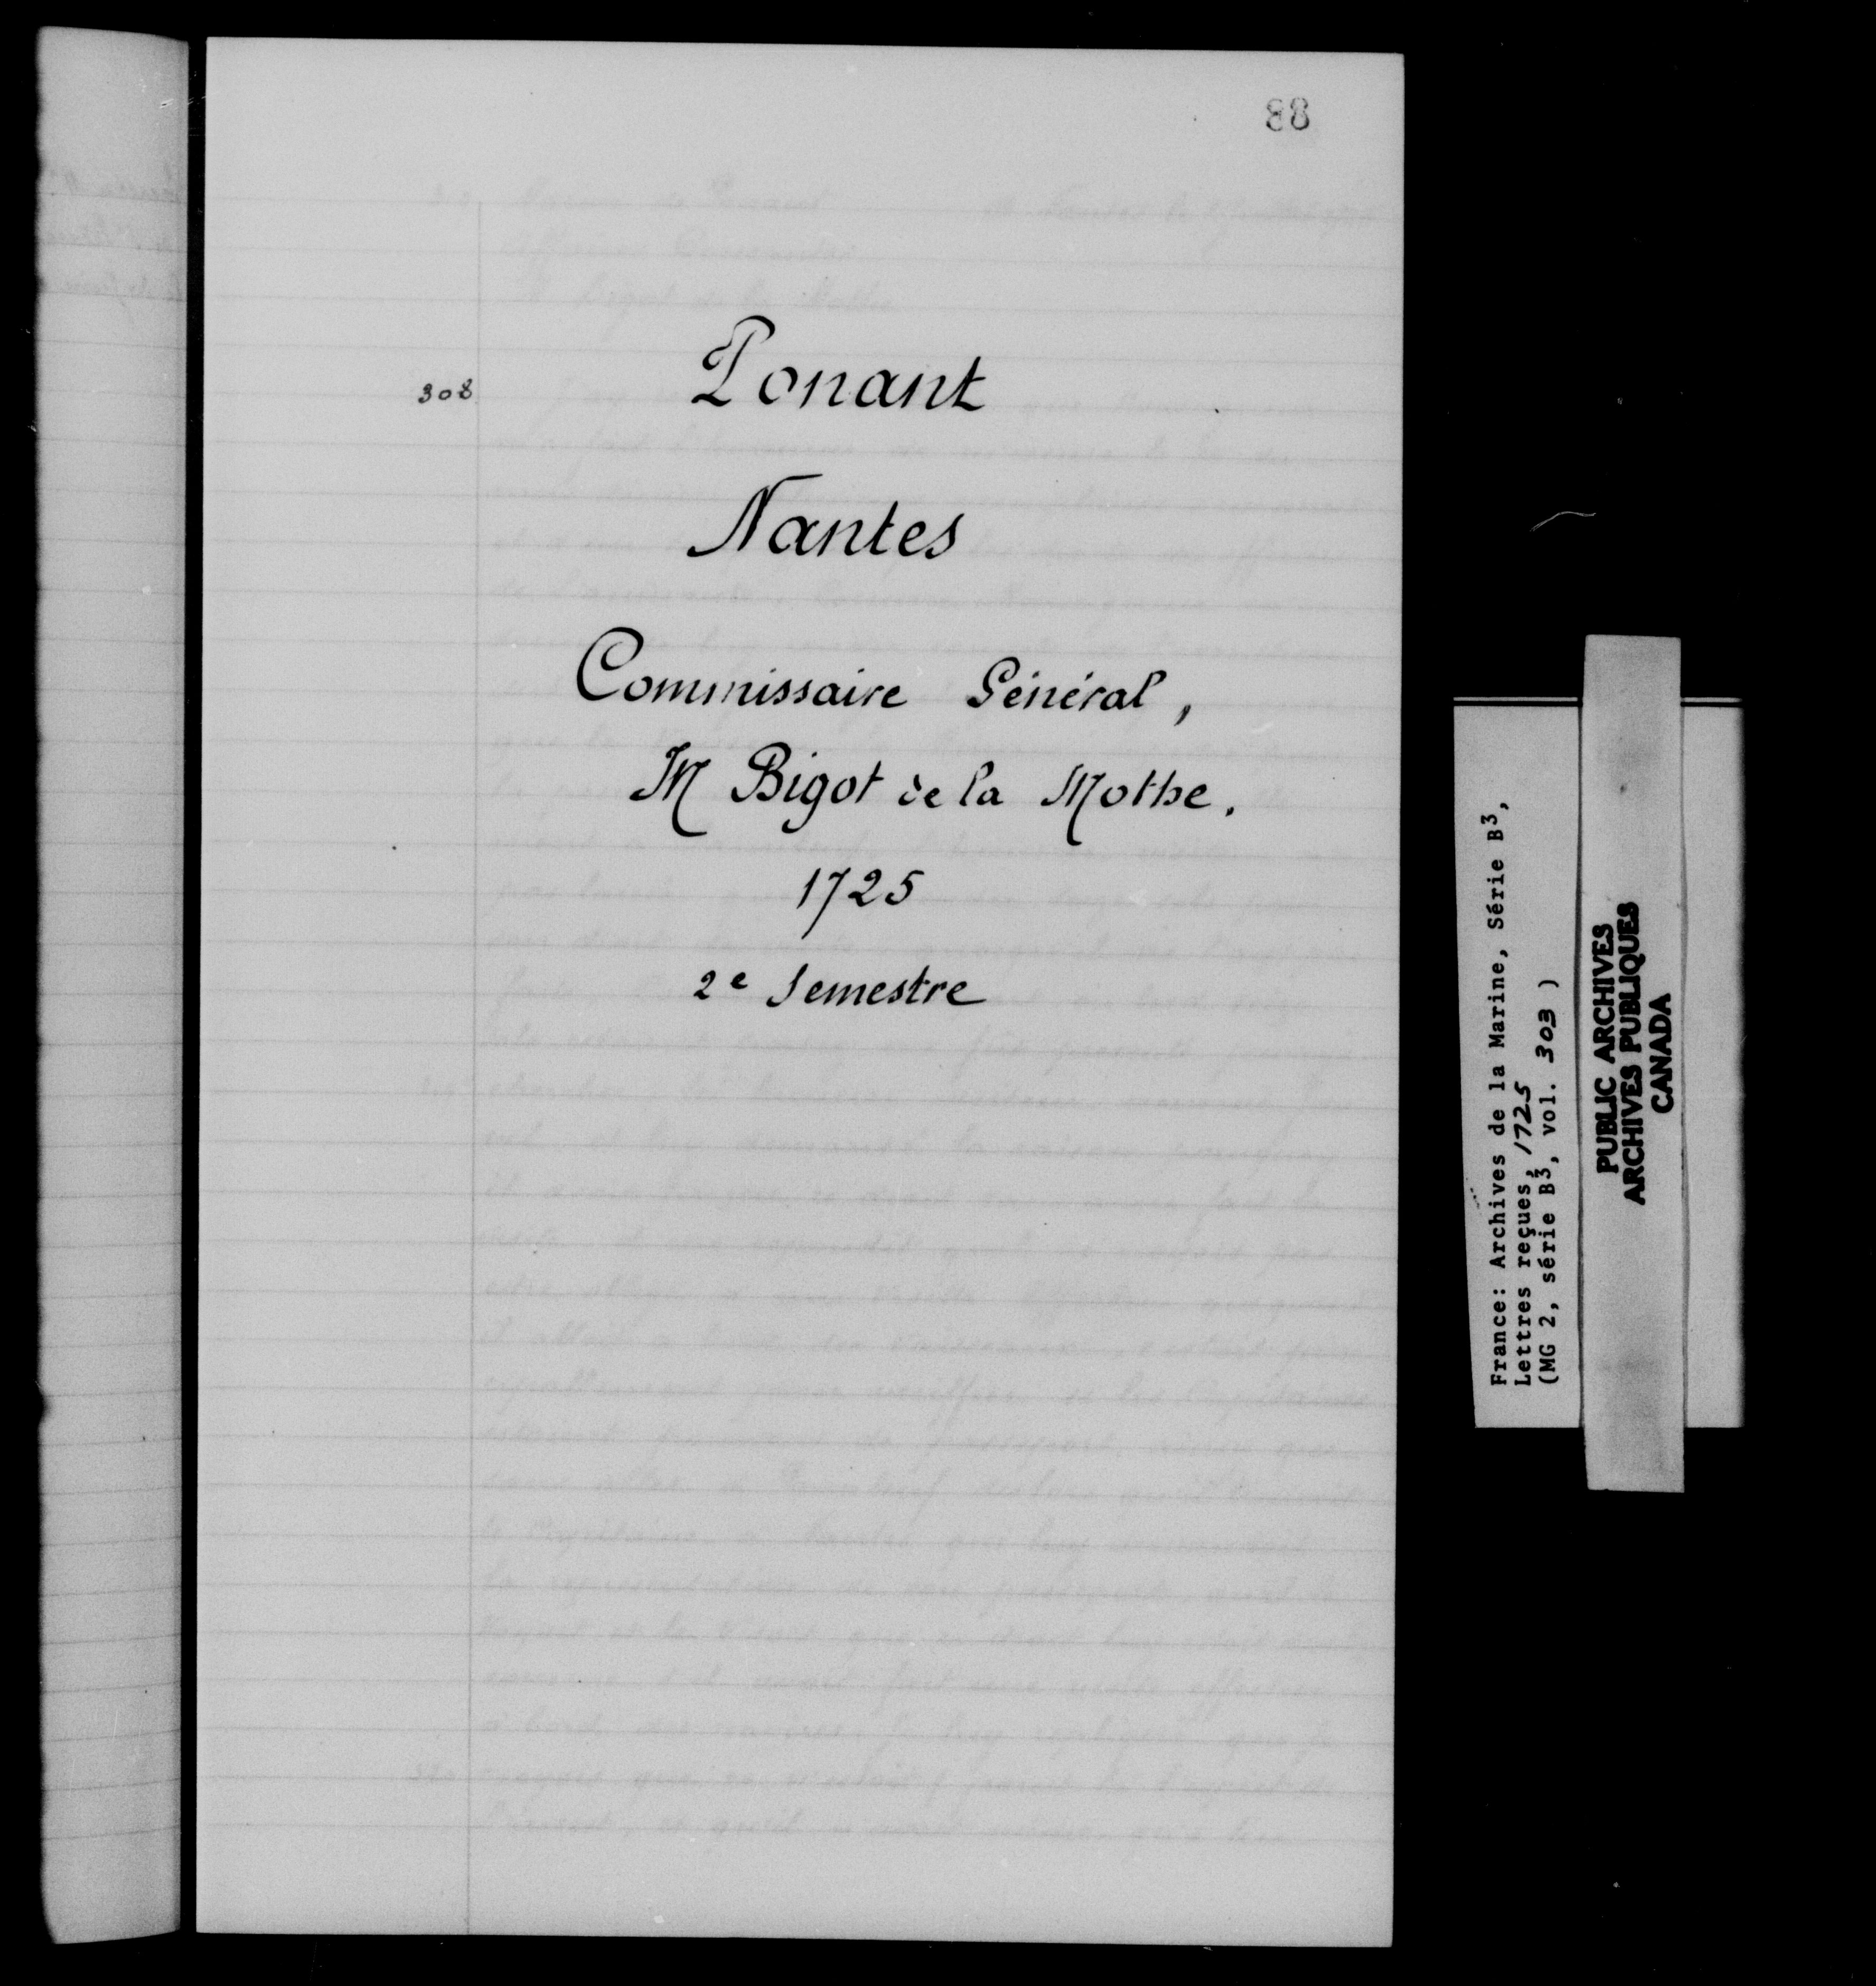 88
308
Ponant
Nantes
Commissaire Général,
M Bigot de la Mothe.
1725
2e Semestre
France: Archives de la Marine, Série B3,
Lettres reçues, 1725
(MG 2, série B3, vol. 303 )
PUBLIC ARCHIVES
ARCHIVES PUBLIQUES
CANADA